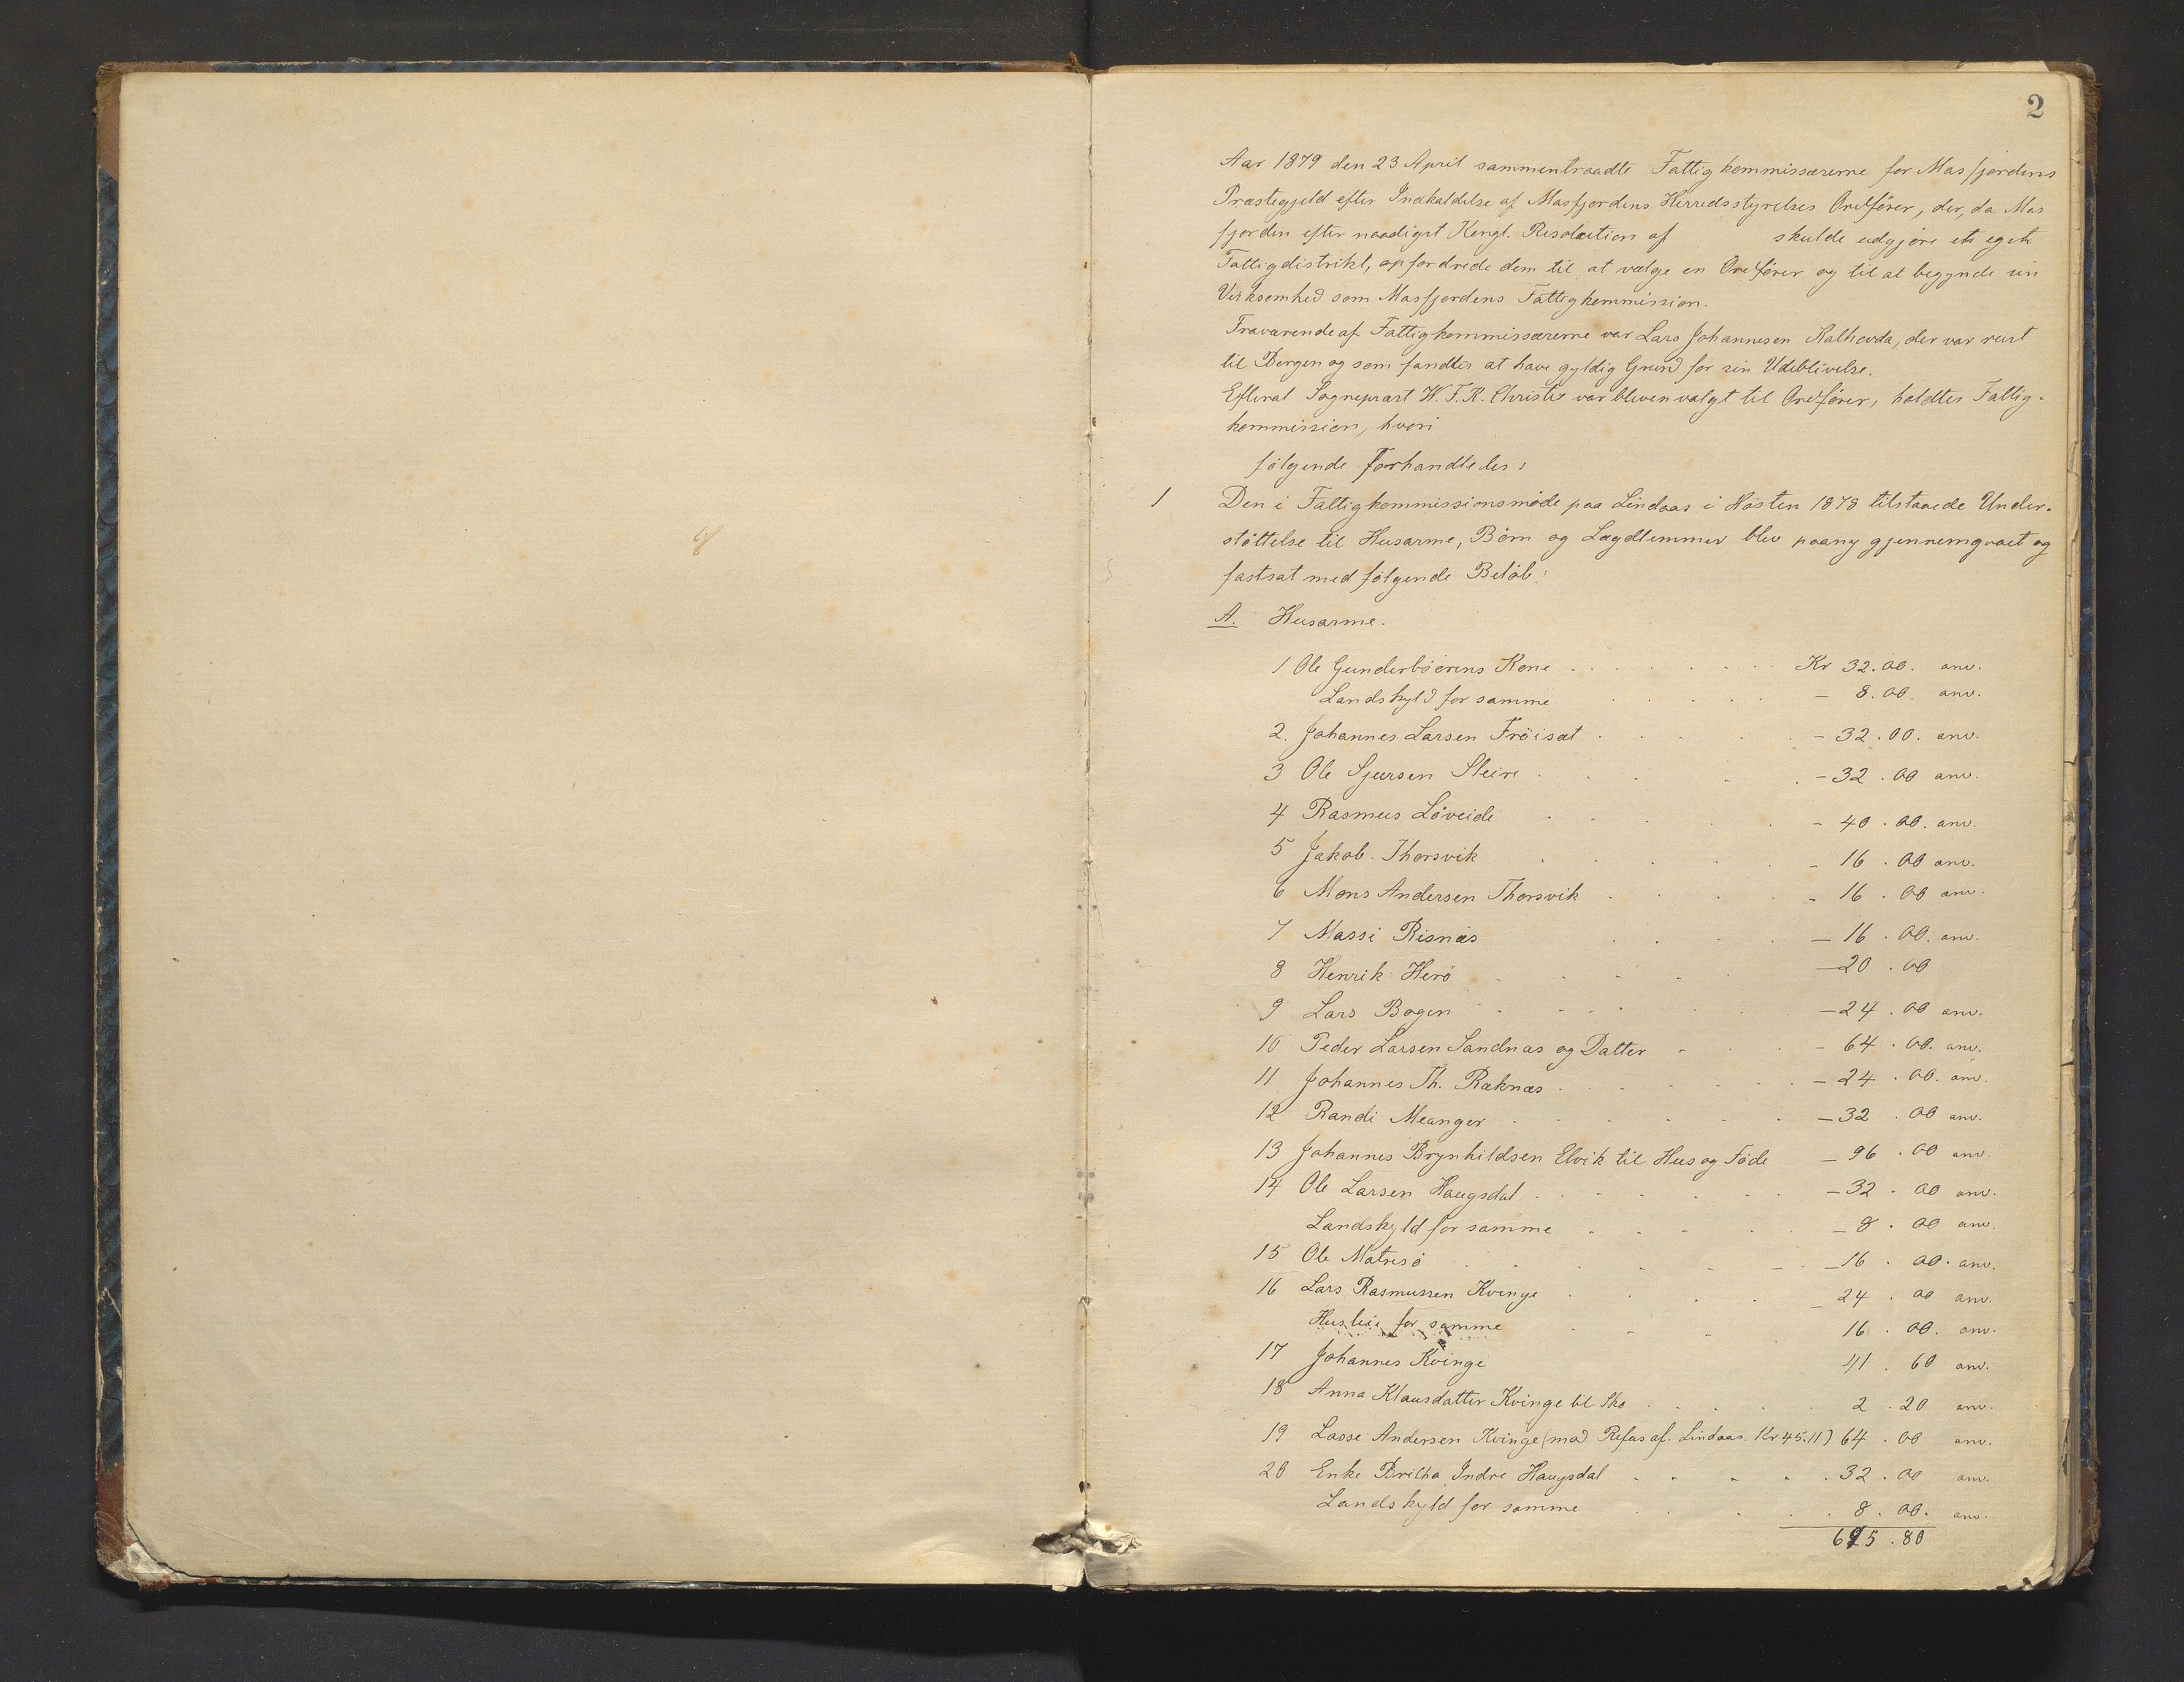 2
Aar 1879 den 23 April sammentraadte Fattigkommissærerne for Masfjordens
Præstegjeld efter Indkaldelse af Masfjordens Herredsstyrelses Ordfører, der, da Mas
fjorden efter naadigst Kongl. Resolution af skulde udgjøre et eget
Fattigdistrikt, opfordrede dem til at vælge en Ordfører og til at begynde sin
Virksomhed som Masfjordens Fattigkommission.
Fraværende af Fattigkommissærerne var Lars Johannesen Kalhovda, der var reist
til Bergen og som fandtes at have gyldig Grund for sin Udeblivelse.
Efterat Sognepræst W. F. K. Christie var bleven valgt til Ordfører, holdtes Fattig-
kommission, hvori
følgende Forhandledes:
1 Den i Fattigkommissionsmøde paa Lindaas i Høsten 1878 tilstaaede Under-
støttelse til Husarme, Børn og Lægdlemmer blev paany gjennemgaaet og
fastsat med følgende Beløb:
A. Husarme.
1 Ole Gunderbøerens Kone Kr 32.00. anv.
Landskyld for samme - 8.00. anv.
2. Johannes Larsen Frøiset - 32.00. anv.
3 Ole Sjursen Sleire - 32.00 anv.
4 Rasmus Løveide - 40.00. anv.
5 Jakob Thorsvik - 16.00 anv.
6 Mons Andersen Thorsvik - 16.00 anv.
7 Massi Risnæs - 16.00. anv.
8 Henrik Herø - 20.00
9 Lars Bogen - 24.00 anv.
10 Peder Larsen Sandnæs og Datter - 64.00. anv.
11 Johannes Th. Räknæs - 24.00. anv.
12 Randi Meanger - 32.00 anv.
13 Johannes Brynhildsen Elvik til Hus og Føde - 96.00 anv.
14 Ole Larsen Haugsdal - 32.00 anv.
Landskyld for samme - 8.00 anv.
15 Ole Matresø - 16.00. anv.
16 Lars Rasmussen Kvinge - 24.00 anv.
Husleie for samme 16.00. anv.
17 Johannes Kvinge 41.60 anv.
18 Anna Klausdatter Kvinge til Sko 2.20 anv.
19 Lasse Andersen Kvinge (mod Refus af Lindaas Kr 45.11) 64.00 anv.
20 Enke Britha Indre Haugsdal 32.00 anv.
Landskyld for samme 8.00. anv.
695.80